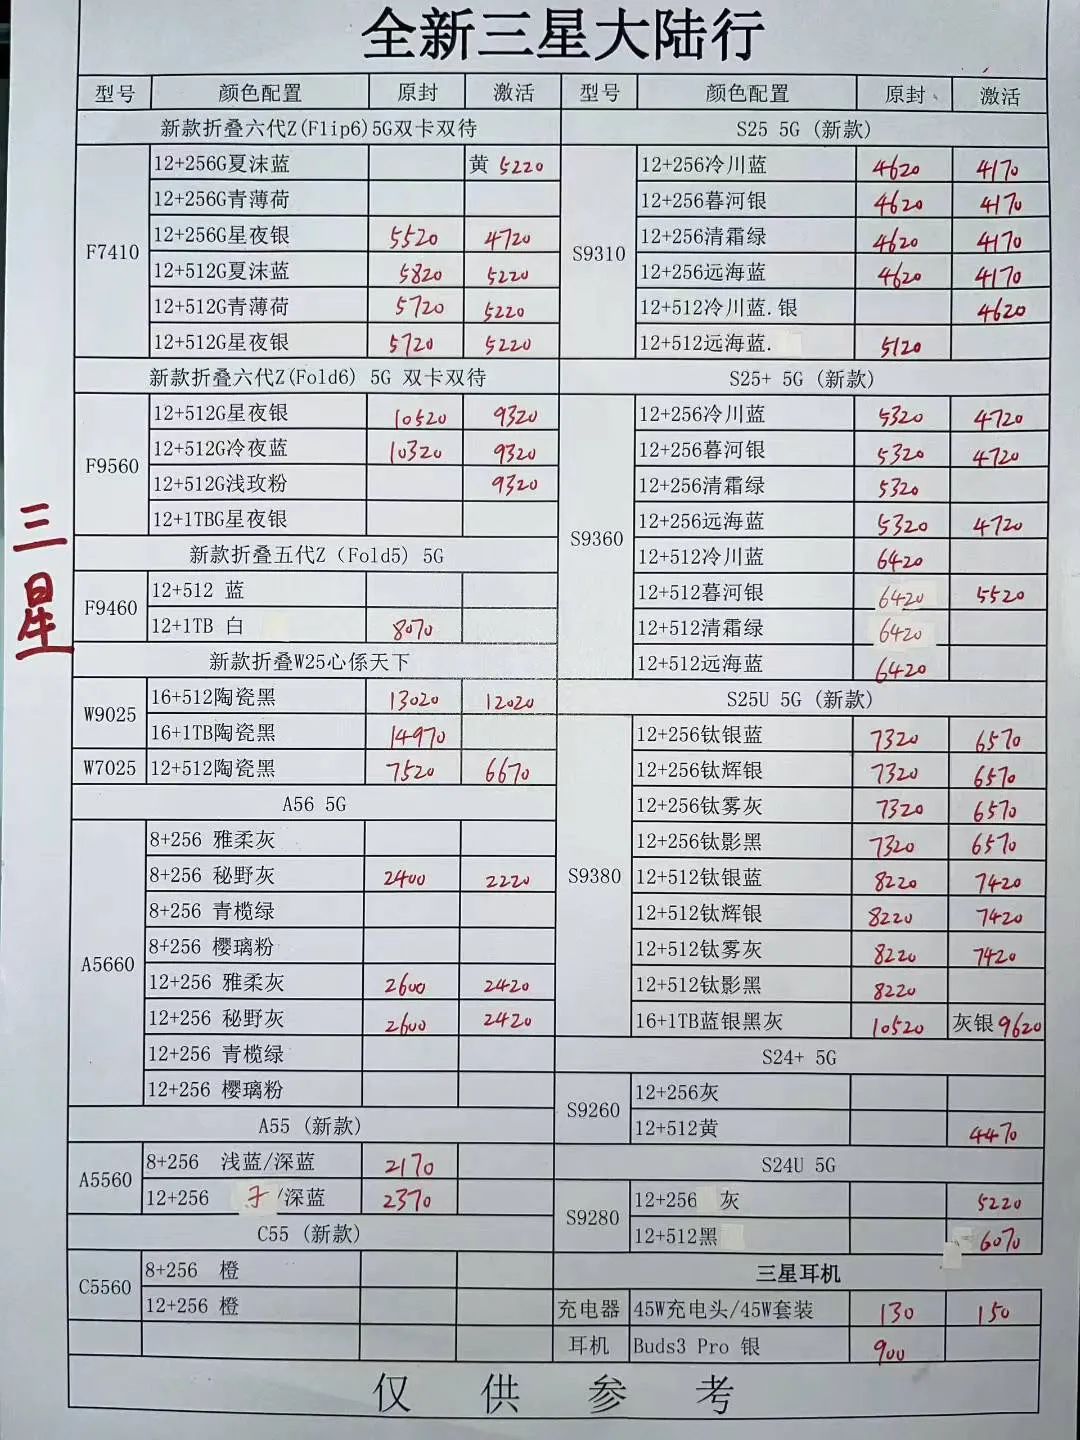 全新三星大陆行
型号 颜色配置 原封 激活
新款折叠六代Z(Flip6)5G双卡双待
F7410
12+256G夏沫蓝 黄 5220
12+256G青薄荷
12+256G星夜银 5520 4720
12+512G夏沫蓝 5820 5220
12+512G青薄荷 5720 5220
12+512G星夜银 5720 5220
新款折叠六代Z(Fold6) 5G 双卡双待
F9560
12+512G星夜银 10520 9320
12+512G冷夜蓝 10320 9320
12+512G浅玫粉 9320
12+1TBG星夜银
新款折叠五代Z（Fold5) 5G
F9460
12+512 蓝
12+1TB 白 8070
新款折叠W25心係天下
W9025
16+512陶瓷黑 13020 12020
16+1TB陶瓷黑 14970
W7025 12+512陶瓷黑 7520 6670
A56 5G
A5660
8+256 雅柔灰
8+256 秘野灰 2400 2220
8+256 青榄绿
8+256 樱璃粉
12+256 雅柔灰 2600 2420
12+256 秘野灰 2600 2420
12+256 青榄绿
12+256 樱璃粉
A55 (新款)
A5560
8+256 浅蓝/深蓝 2170
12+256 /深蓝 2370
C55 (新款)
C5560
8+256 橙
12+256 橙
型号 颜色配置 原封 激活
S25 5G (新款)
S9310
12+256冷川蓝 4620 4170
12+256暮河银 4620 4170
12+256清霜绿 4620 4170
12+256远海蓝 4620 4170
12+512冷川蓝.银 4620
12+512远海蓝. 5120
S25+ 5G (新款)
S9360
12+256冷川蓝 5320 4720
12+256暮河银 5320 4720
12+256清霜绿 5320
12+256远海蓝 5320 4720
12+512冷川蓝 6420
12+512暮河银 6420 5520
12+512清霜绿 6420
12+512远海蓝 6420
S25U 5G (新款)
S9380
12+256钛银蓝 7320 6570
12+256钛辉银 7320 6570
12+256钛雾灰 7320 6570
12+256钛影黑 7320 6570
12+512钛银蓝 8220 7420
12+512钛辉银 8220 7420
12+512钛雾灰 8220 7420
12+512钛影黑 8220
16+1TB蓝银黑灰 10520 灰银 9620
S24+ 5G
S9260
12+256灰
12+512黄 4470
S24U 5G
S9280
12+256 灰 5220
12+512黑 6070
三星耳机
充电器 45W充电头/45W套装 130 150
耳机 Buds3 Pro 银 900
仅供参考
三星